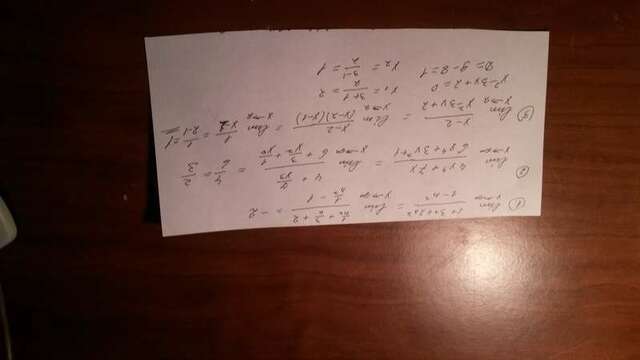 ① lim x→∞ (1+3n+2n²)/(1-n²) = lim x→∞ (1/n² + 3/n + 2)/(1/n² - 1) = -2
② lim x→∞ (4x⁴+7x)/(6x⁴+3x²+1) = lim x→∞ (4 + 7/x³)/(6 + 3/x² + 1/x⁴) = 4/6 = 2/3
③ lim x→2 (x-2)/(x²-3x+2) = lim x→2 (x-2)/((x-2)(x-1)) = lim x→2 1/(x-1) = 1/(2-1) = 1
x²-3x+2=0 x₁ = (3+1)/2 = 2
D=9-8=1 x₂ = (3-1)/2 = 1